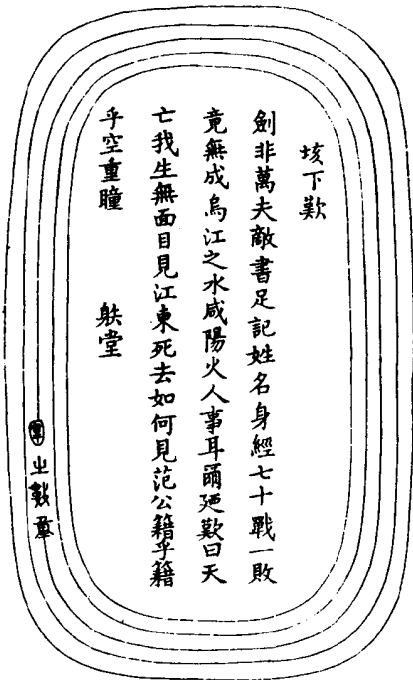 垓下歎
劍非萬夫敵書足記姓名身經七十戰一敗
竟無成烏江之水咸陽火人事耳爾廼歎曰天
亡我生無面目見江東死去如何見范公籍乎籍
乎空重瞳 堂